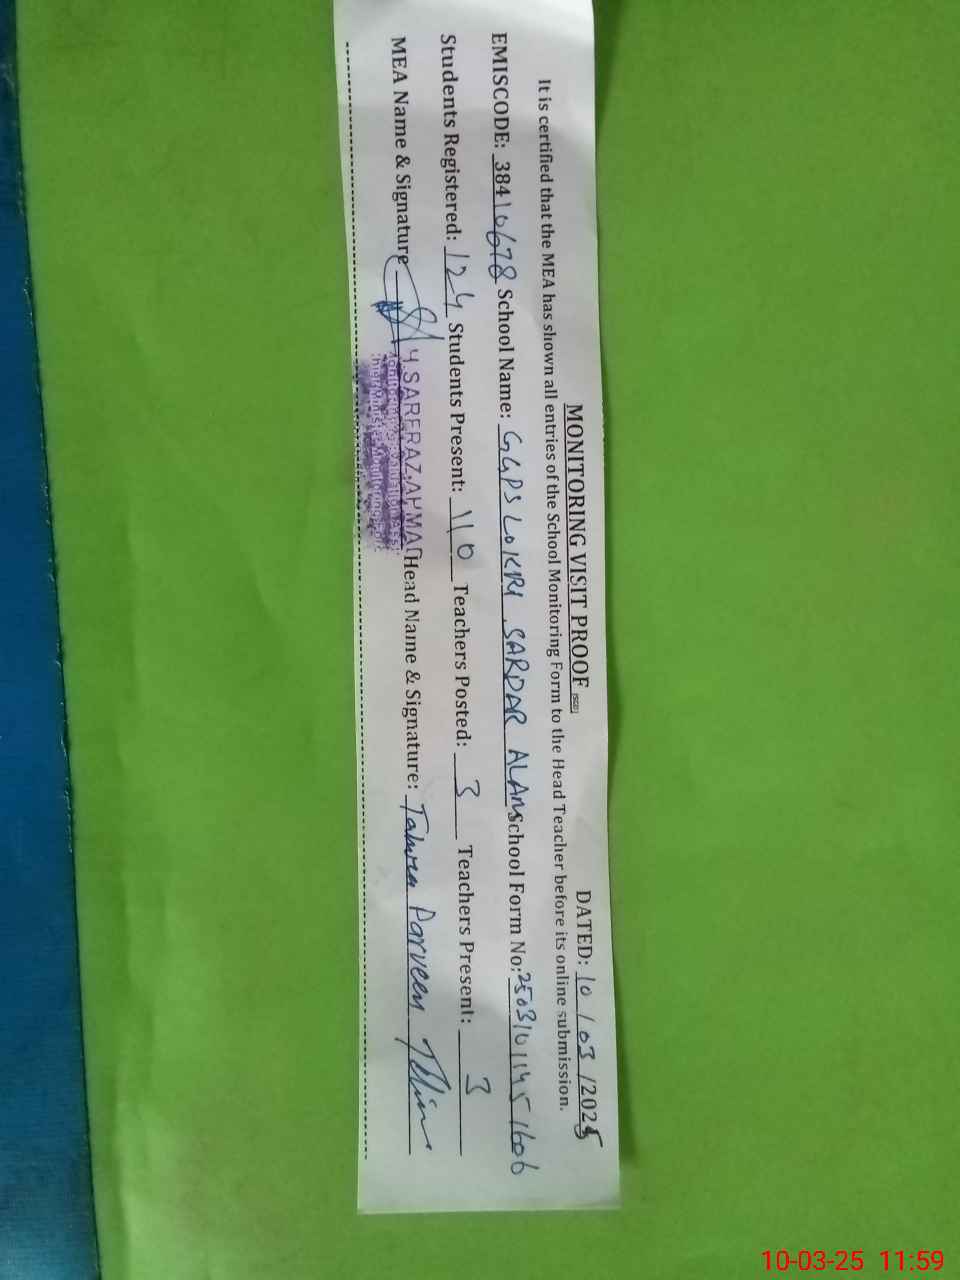 MONITORING VISIT PROOF
DATED: 10/03/2025
It is certified that the MEA has shown all entries of the School Monitoring Form to the Head Teacher before its online submission.
EMISCODE: 38410678 School Name: GGPS LOKRI SARDAR ALAM School Form No: 25031011451606
Students Registered: 124 Students Present: 110 Teachers Posted: 3 Teachers Present: 3
MEA Name & Signature SARFRAZ AHMAD Head Name & Signature: Tahira Parveen
10-03-25 11:59